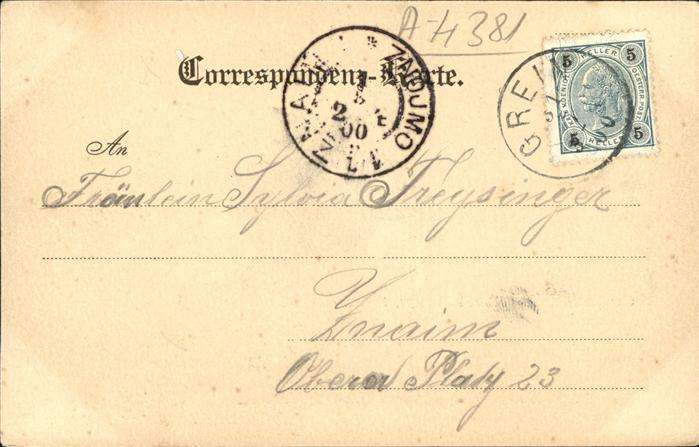 A-4381
Correspondenz-Karte.
ZNAIM ZNOJMO
2
00
GREIN
5 HELLER 5
5 HELLER 5
An
Fräulein Sylvia Freysinger
Znaim
Oberer Platz 23